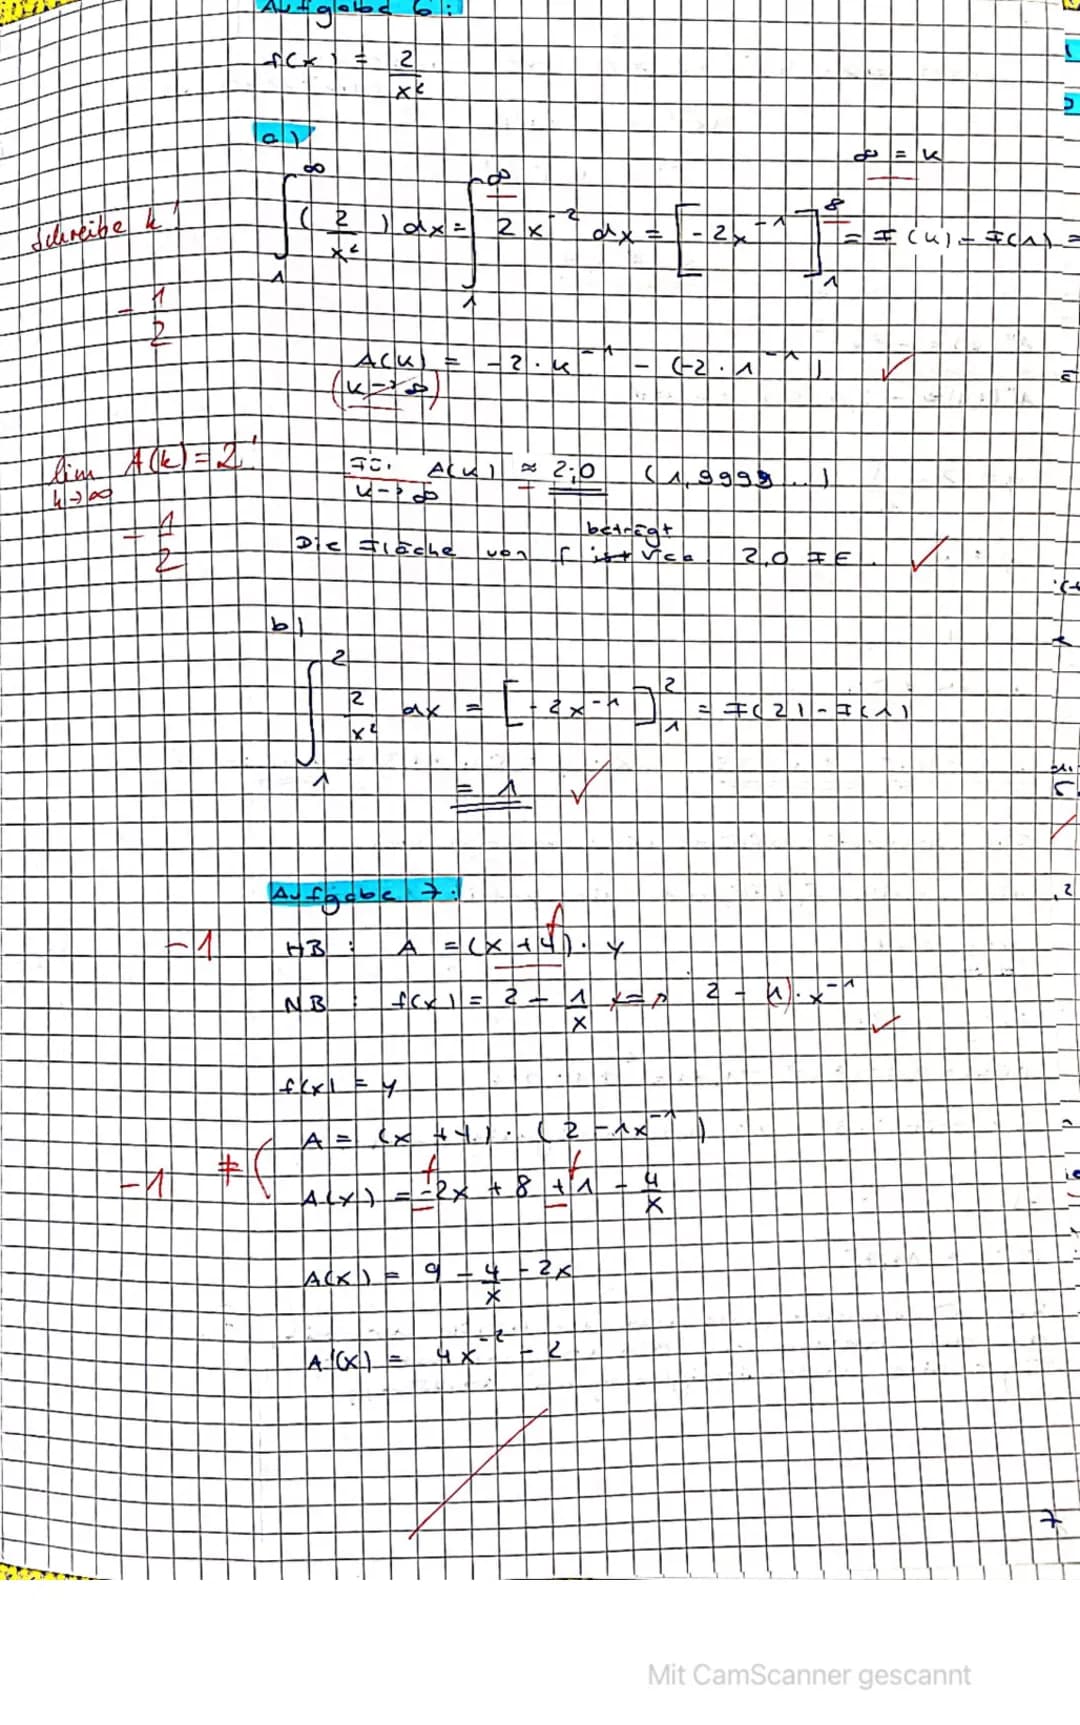 Aufgabe 6:
f(x) = 2/x²
a)
∞ = k
Schreibe k!
∫₁^∞ (2/x²) dx = ∫₁^∞ 2x⁻² dx = [-2x⁻¹]₁^∞ = F(k) - F(1) =
-1/2
A(k) = -2 · k⁻¹ - (-2 · 1⁻¹)
(k->∞)
lim A(k) = 2!
k→∞
A(k) ≈ 2,0 (1,9999...)
k->∞
-1/2
beträgt
Die Fläche von f ist 2,0 FE.
b)
∫₁² 2/x² dx = [-2x⁻¹]₁² = F(2) - F(1)
= 1
Aufgabe 7:
-1
HB: A = (x+4) · y f
NB: f(x) = 2 - 1/x <=> 2 - 1 · x⁻¹
f(x) = y
A = (x+4) · (2-1x⁻¹)
-1 ≠ (
f f
A(x) = -2x + 8 + 1 - 4/x
A(x) = 9 - 4/x - 2x
A'(x) = 4x⁻² - 2
7
Mit CamScanner gescannt